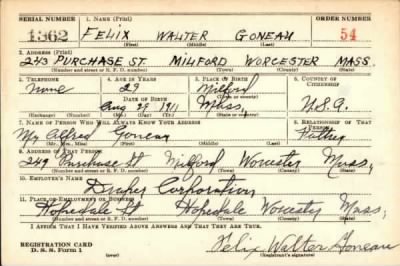 SERIAL NUMBER 1. NAME (Print) ORDER NUMBER
1362 FELIX WALTER GONEAU 54
(First) (Middle) (Last)
2. ADDRESS (Print)
243 PURCHASE ST. MILFORD WORCESTER MASS.
(Number and street or R. F. D. number) (Town) (County) (State)
3. TELEPHONE 4. AGE IN YEARS 5. PLACE OF BIRTH 6. COUNTRY OF CITIZENSHIP
None 29 Milford
DATE OF BIRTH (Town or county)
Aug 29 1911 Mass, U.S.A.
(Exchange) (Number) (Mo.) (Day) (Yr.) (State or country)
7. NAME OF PERSON WHO WILL ALWAYS KNOW YOUR ADDRESS 8. RELATIONSHIP OF THAT PERSON
Mr Alfred Goneau Father
(Mr., Mrs., Miss) (First) (Middle) (Last)
9. ADDRESS OF THAT PERSON
249 Purchase St Milford Worcester Mass,
(Number and street or R. F. D. number) (Town) (County) (State)
10. EMPLOYER'S NAME
Draper Corporation
11. PLACE OF EMPLOYMENT OR BUSINESS
Hopedale St Hopedale Worcester Mass,
(Number and street or R. F. D. number) (Town) (County) (State)
I AFFIRM THAT I HAVE VERIFIED ABOVE ANSWERS AND THAT THEY ARE TRUE.
REGISTRATION CARD
D. S. S. Form 1
Felix Walter Goneau
(Registrant's signature)